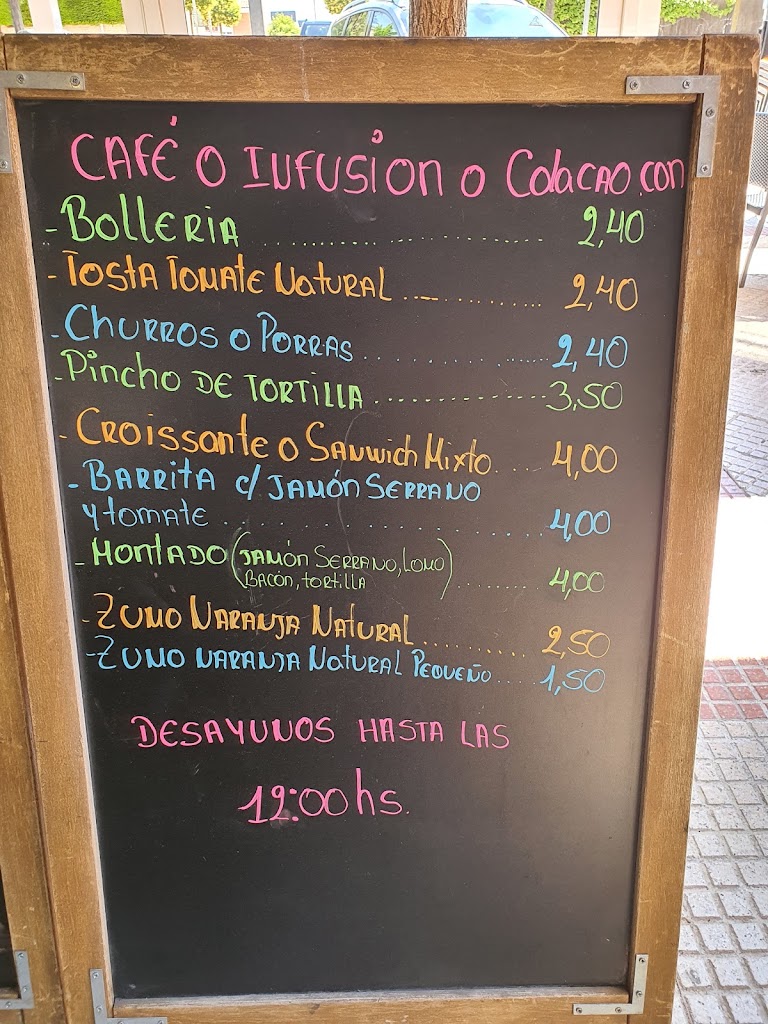 CAFÉ O INFUSION O COLACAO CON
- BOLLERIA .......... 2,40
- TOSTA TOMATE NATURAL .......... 2,40
- CHURROS O PORRAS .......... 2,40
- PINCHO DE TORTILLA .......... 3,50
- CROISSANTE O SANWICH MIXTO .... 4,00
- BARRITA C/ JAMÓN SERRANO
Y TOMATE .......... 4,00
- MONTADO (JAMÓN SERRANO, LOMO
BACÓN, TORTILLA) .......... 4,00
- ZUMO NARANJA NATURAL .......... 2,50
- ZUMO NARANJA NATURAL PEQUEÑO .... 1,50
DESAYUNOS HASTA LAS
12:00 hs.